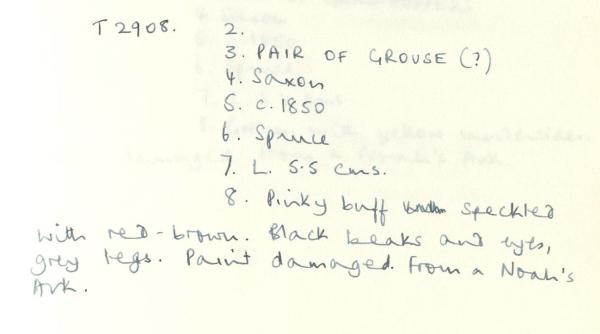 T 2908. 2.
3. PAIR OF GROUSE (?)
4. Saxon
5. c. 1850
6. Spruce
7. L. 5.5 cms.
8. Pinky buff speckled
with red-brown. Black beaks and eyes,
grey legs. Paint damaged. From a Noah's
Ark.